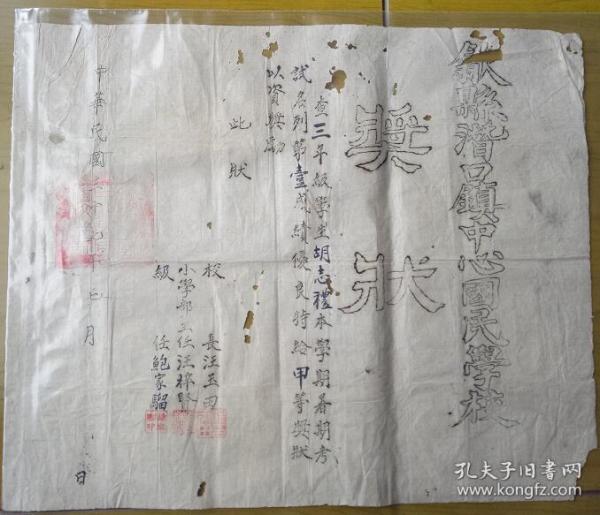 歙縣潛口鎮中心國民學校
獎狀
查三年級學生胡志禮本學期暑期考
試名列第壹成績優良特給甲等獎狀
以資獎勵
此狀
校長汪玉田
小學部主任汪
級任鮑家騮
中華民國年七月日
孔夫子旧书网
www.kongfz.com